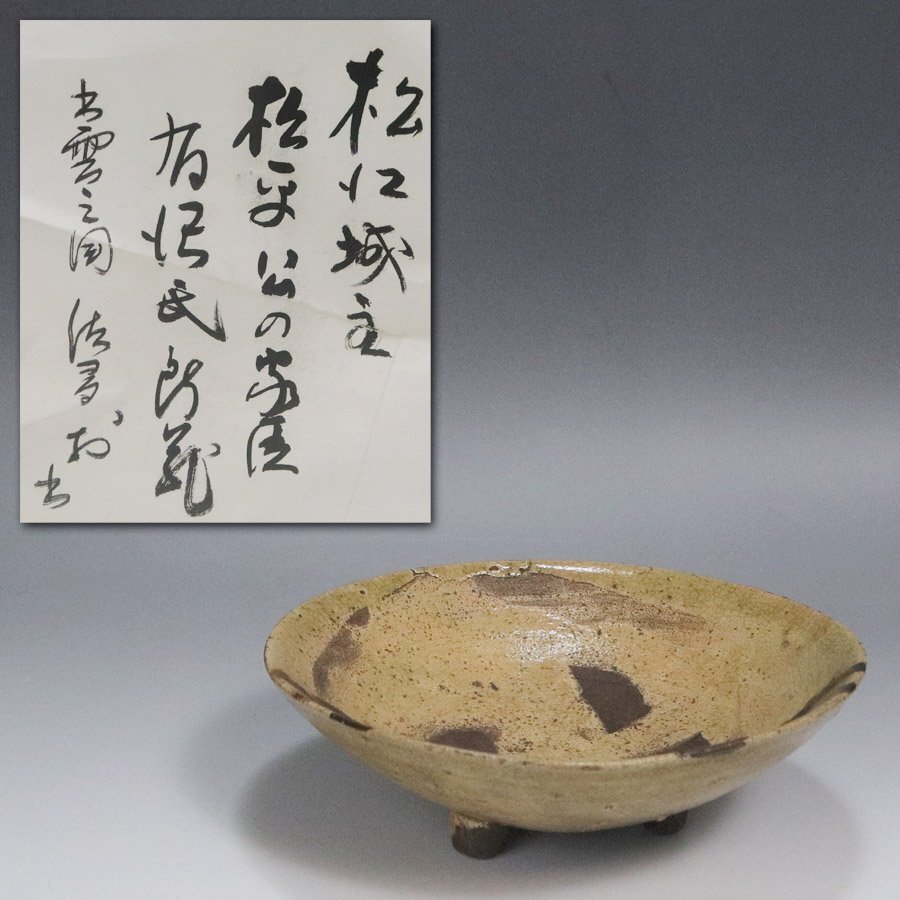 松江城主
松平公の家臣
有沢氏所蔵
出雲之国